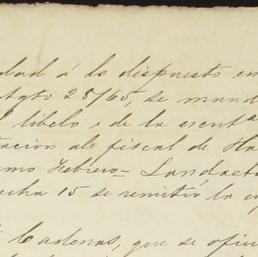 dad á lo dispuesto en
Agto 25/65, se mand
l libelo i de la escrita
tacion al fiscal de Ha
imo Febrero = Landaet
echa 15 se remitió la
Cadenas, que se ofici